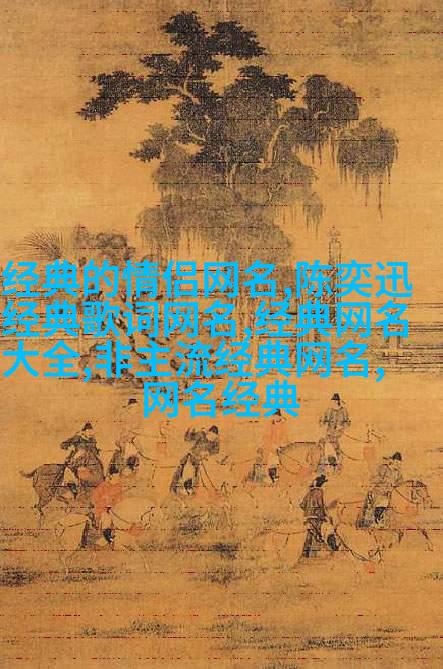 经典的情侣网名,陈奕迅
经典歌词网名,经典网名
大全,非主流经典网名,
网名经典